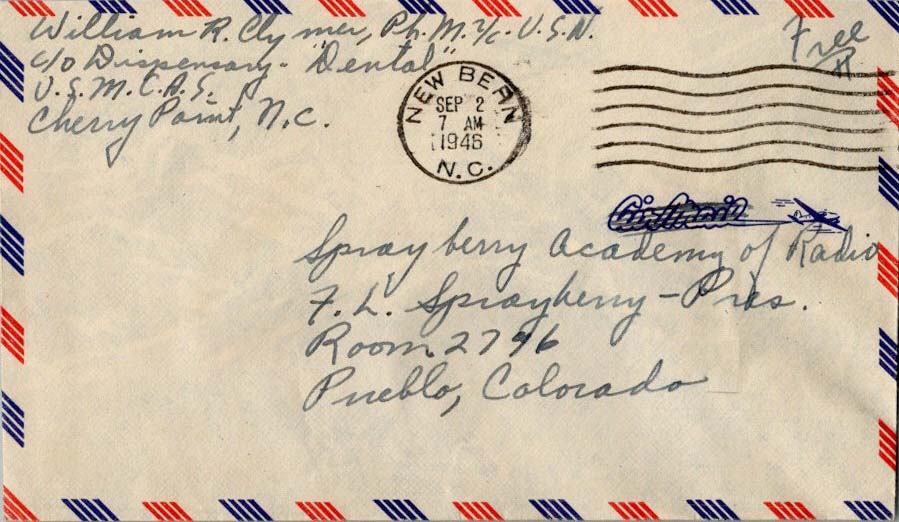 William R. Clymer, Ph.M. 2/c. U.S.N.
c/o Dispensary - "Dental"
U.S.M.C.A.S.
Cherry Point, N.C.
Free
NEW BERN
SEP 2
7 AM
1946
N.C.
Air Mail
Sprayberry Academy of Radio
F. L. Sprayberry - Pres.
Room 2796
Pueblo, Colorado